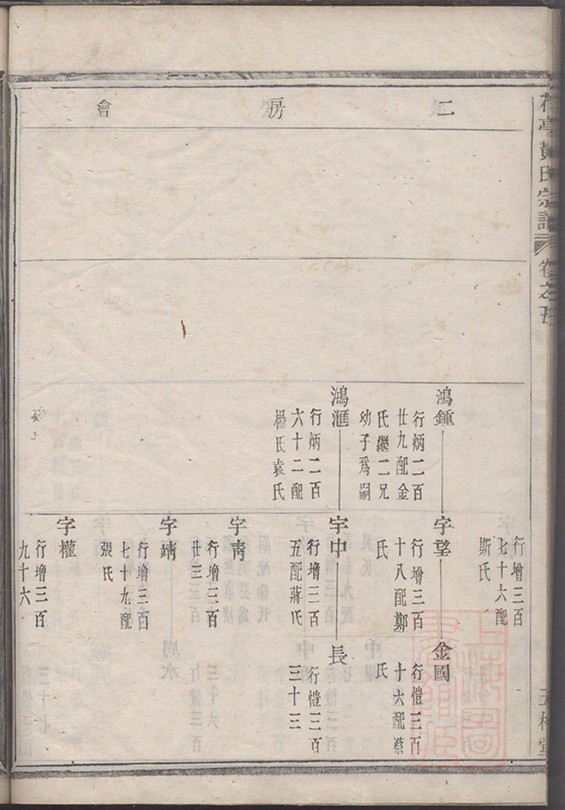 氏宗譜
卷之五
二
房
會
行增三百
七十六配
斯氏
鴻鍾
行炳二百
廿九配金
氏繼二兄
幼子爲嗣
字望
行增三百
十八配鄭
氏
金國
行愷三百
十六配蔡
氏
鴻滙
行炳二百
六十二配
楊氏袁氏
字中
行增三百
五配蔣氏
長
行愷三百
三十三
字青
行增三百
廿三
字靖
行增三百
七十九配
張氏
字權
行增三百
九十六